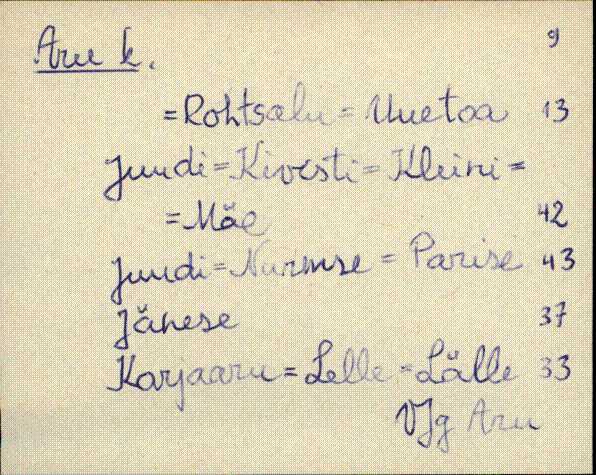 Aru k. 9
=Rohtsalu = Uuetoa 13
Juudi=Kivesti=Kleini=
=Mäe 42
Juudi=Nurmse = Parise 43
Jänese 37
Karjaaru=Lelle=Lälle 33
VJg Aru